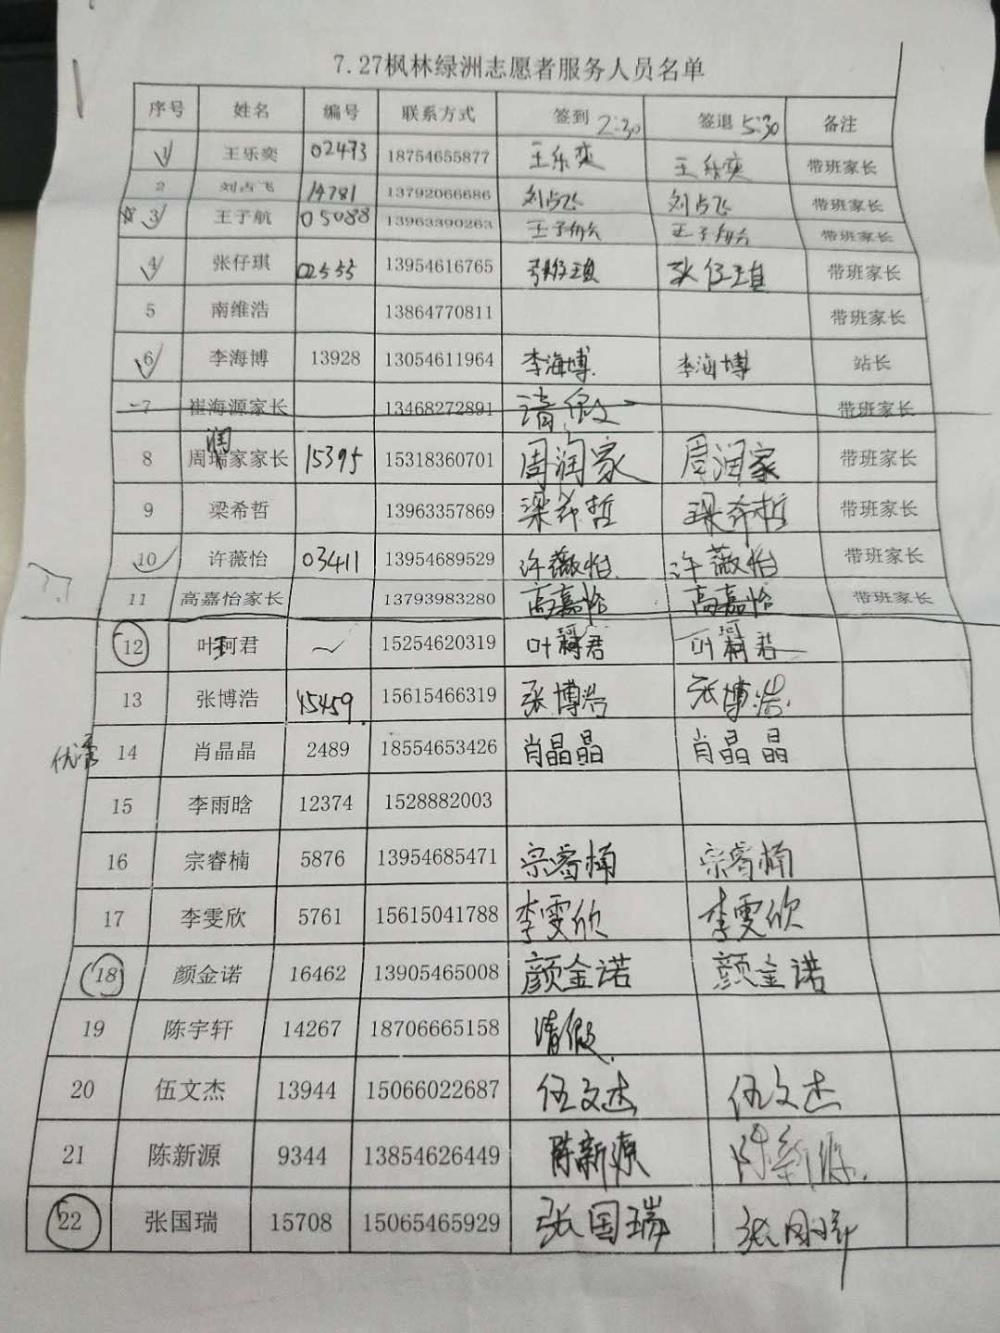 7.27枫林绿洲志愿者服务人员名单
序号 姓名 编号 联系方式 签到 2:30 签退 5:30 备注
1 王乐奕 02473 18754655877 王乐奕 王乐奕 带班家长
2 刘占飞 14781 13792066686 刘占飞 刘占飞 带班家长
☆ 3 王子航 05088 13963390263 王子航 王子航 带班家长
4 张仔琪 02555 13954616765 张仔琪 张仔琪 带班家长
5 南维浩 13864770811 带班家长
6 李海博 13928 13054611964 李海博 李海博 站长
7 崔海源家长 13468272891 请假 带班家长
8 周瑞家家长 润 15395 15318360701 周润家 周润家 带班家长
9 梁希哲 13963357869 梁希哲 梁希哲 带班家长
10 许薇怡 03411 13954689529 许薇怡 许薇怡 带班家长
11 高嘉怡家长 13793983280 高嘉怡 高嘉怡 带班家长
12 叶珂君 ~ 15254620319 叶珂君 叶珂君
13 张博浩 15459 15615466319 张博浩 张博浩
优秀 14 肖晶晶 2489 18554653426 肖晶晶 肖晶晶
15 李雨晗 12374 1528882003
16 宗睿楠 5876 13954685471 宗睿楠 宗睿楠
17 李雯欣 5761 15615041788 李雯欣 李雯欣
18 颜金诺 16462 13905465008 颜金诺 颜金诺
19 陈宇轩 14267 18706665158 请假
20 伍文杰 13944 15066022687 伍文杰 伍文杰
21 陈新源 9344 13854626449 陈新源 陈新源
22 张国瑞 15708 15065465929 张国瑞 张国瑞